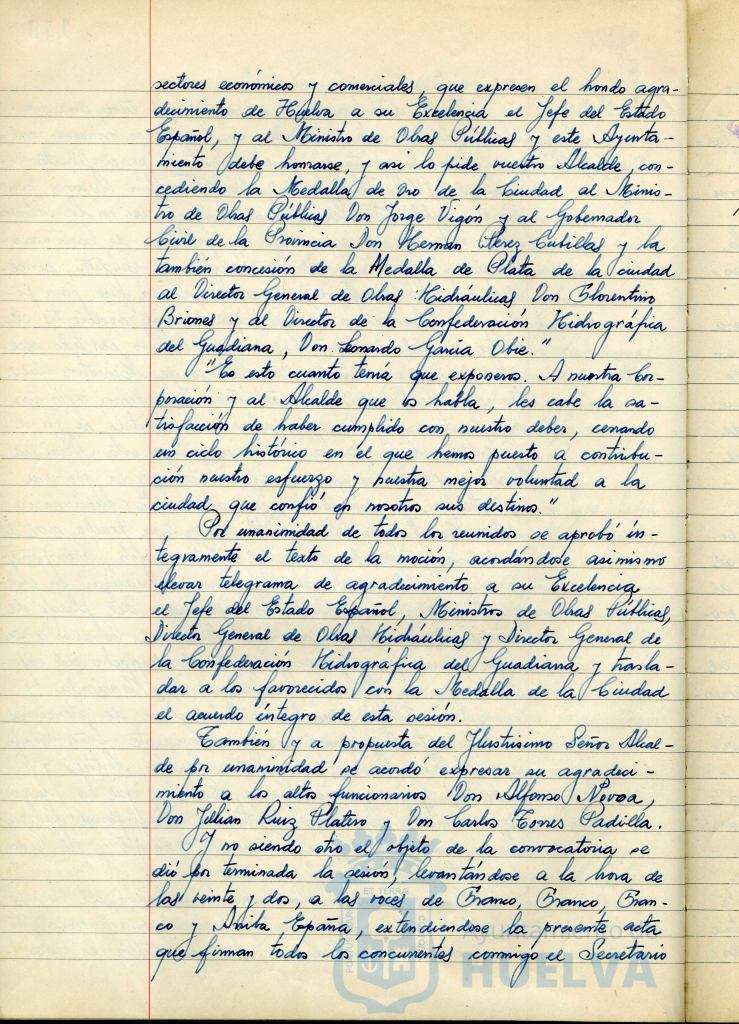 sectores económicos y comerciales, que expresen el hondo agra-
decimiento de Huelva a su Excelencia el Jefe del Estado
Español, y al Ministro de Obras Públicas y este Ayunta-
miento debe honrarse, y asi lo pide vuestro Alcalde, con-
cediendo la Medalla de Oro de la Ciudad al Minis-
tro de Obras Públicas Don Jorge Vigón y al Gobernador
Civil de la Provincia Don Hernan Pérez Cubillas y la
también concesión de la Medalla de Plata de la ciudad
al Director General de Obras Hidráulicas Don Florentino
Briones y al Director de la Confederación Hidrográfica
del Guadiana, Don Leonardo García Obie."
"Es esto cuanto tenía que exponeros. A nuestra Cor-
poración y al Alcalde que os habla, les cabe la sa-
tisfacción de haber cumplido con nuestro deber, cerrando
un ciclo histórico en el que hemos puesto a contribu-
ción nuestro esfuerzo y nuestra mejor voluntad a la
ciudad que confió en nosotros sus destinos."
Por unanimidad de todos los reunidos se aprobó ín-
tegramente el texto de la moción, acordándose asimismo
elevar telegrama de agradecimiento a su Excelencia
el Jefe del Estado Español, Ministros de Obras Públicas,
Director General de Obras Hidráulicas y Director General de
la Confederación Hidrográfica del Guadiana y trasla-
dar a los favorecidos con la Medalla de la Ciudad
el acuerdo íntegro de esta sesión.
También y a propuesta del Ilustrísimo Señor Alcal-
de por unanimidad se acordó expresar su agradeci-
miento a los altos funcionarios Don Alfonso Novoa,
Don Julian Ruiz Platero y Don Carlos Torres Padilla.
Y no siendo otro el objeto de la convocatoria se
dió por terminada la sesión, levantándose a la hora de
las veinte y dos, a las voces de Franco, Franco, Fran-
co y Arriba España, extendiendose la presente acta
que firman todos los concurrentes conmigo el Secretario
Ayuntamiento de
HUELVA